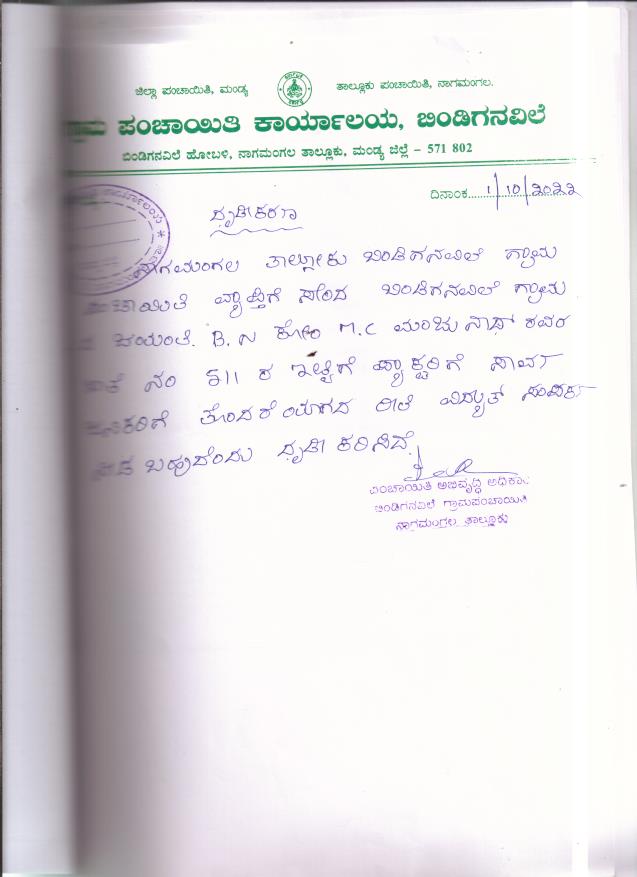 ಜಿಲ್ಲಾ ಪಂಚಾಯಿತಿ, ಮಂಡ್ಯ ತಾಲ್ಲೂಕು ಪಂಚಾಯಿತಿ, ನಾಗಮಂಗಲ.
ಗ್ರಾಮ ಪಂಚಾಯಿತಿ ಕಾರ್ಯಾಲಯ, ಬಿಂಡಿಗನವಿಲೆ
ಬಿಂಡಿಗನವಿಲೆ ಹೋಬಳಿ, ನಾಗಮಂಗಲ ತಾಲ್ಲೂಕು, ಮಂಡ್ಯ ಜಿಲ್ಲೆ - 571 802
ದಿನಾಂಕ 1/10/೨೦೨೨
ಧೃಡೀಕರಣ
ನಾಗಮಂಗಲ ತಾಲ್ಲೋಕು ಬಿಂಡಿಗನವಿಲೆ ಗ್ರಾಮ
ವ್ಯಾಪ್ತಿಗೆ ಸೇರಿದ ಬಿಂಡಿಗನವಿಲೆ ಗ್ರಾಮ
ಜಯಂತಿ. B. N ಕೋಂ M. C ಮಂಜುನಾಥ್ ರವರ
ನಂ 511 ರ ಇಟ್ಟಿಗೆ ಪ್ಯಾಕ್ಟರಿಗೆ ಸಾರ್ವ
ತೊಂದರೆಯಾಗದ ರೀತಿ ವಿದ್ಯುತ್ ಸಂಪರ್ಕ
ಬಹುದೆಂದು ಧೃಡೀಕರಿಸಿದೆ.
ಪಂಚಾಯಿತಿ ಅಭಿವೃದ್ಧಿ ಅಧಿಕಾರಿ
ಬಿಂಡಿಗನವಿಲೆ ಗ್ರಾಮಪಂಚಾಯಿತಿ
ನಾಗಮಂಗಲ ತಾಲ್ಲೂಕು